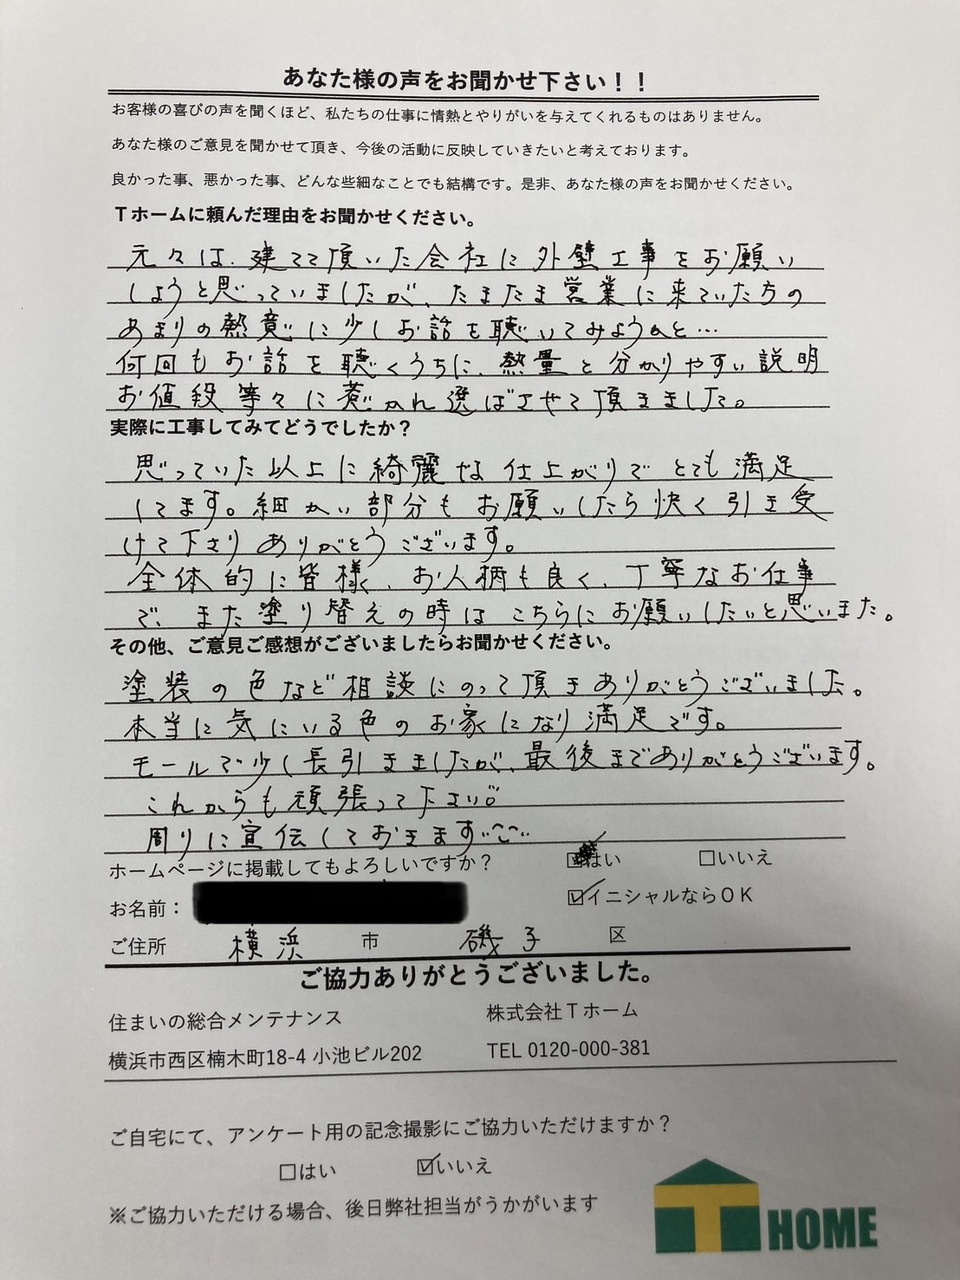 あなた様の声をお聞かせ下さい！！
お客様の喜びの声を聞くほど、私たちの仕事に情熱とやりがいを与えてくれるものはありません。
あなた様のご意見を聞かせて頂き、今後の活動に反映していきたいと考えております。
良かった事、悪かった事、どんな些細なことでも結構です。是非、あなた様の声をお聞かせください。
Ｔホームに頼んだ理由をお聞かせください。
元々は、建てて頂いた会社に外壁工事をお願い
しようと思っていましたが、たまたま営業に来ていた方の
あまりの熱意に少しお話を聴いてみようと…
何回もお話を聴くうちに、熱量と分かりやすい説明
お値段等々に惹かれ選ばさせて頂きました。
実際に工事してみてどうでしたか？
思っていた以上に綺麗な仕上がりでとても満足
してます。細かい部分もお願いしたら快く引き受
けて下さりありがとうございます。
全体的に皆様、お人柄も良く、丁寧なお仕事
で、また塗り替えの時はこちらにお願いしたいと思いまた。
その他、ご意見ご感想がございましたらお聞かせください。
塗装の色など相談にのって頂きありがとうございました。
本当に気にいる色のお家になり満足です。
モールで少し長引きましたが、最後までありがとうございます。
これからも頑張って下さい。
周りに宣伝しておきます
ホームページに掲載してもよろしいですか？ はい □いいえ
お名前： ☑イニシャルならＯＫ
ご住所 横浜 市 磯子 区
ご協力ありがとうございました。
住まいの総合メンテナンス 株式会社Ｔホーム
横浜市西区楠木町18-4 小池ビル202 TEL 0120-000-381
ご自宅にて、アンケート用の記念撮影にご協力いただけますか？
□はい ☑いいえ
※ご協力いただける場合、後日弊社担当がうかがいます
T HOME